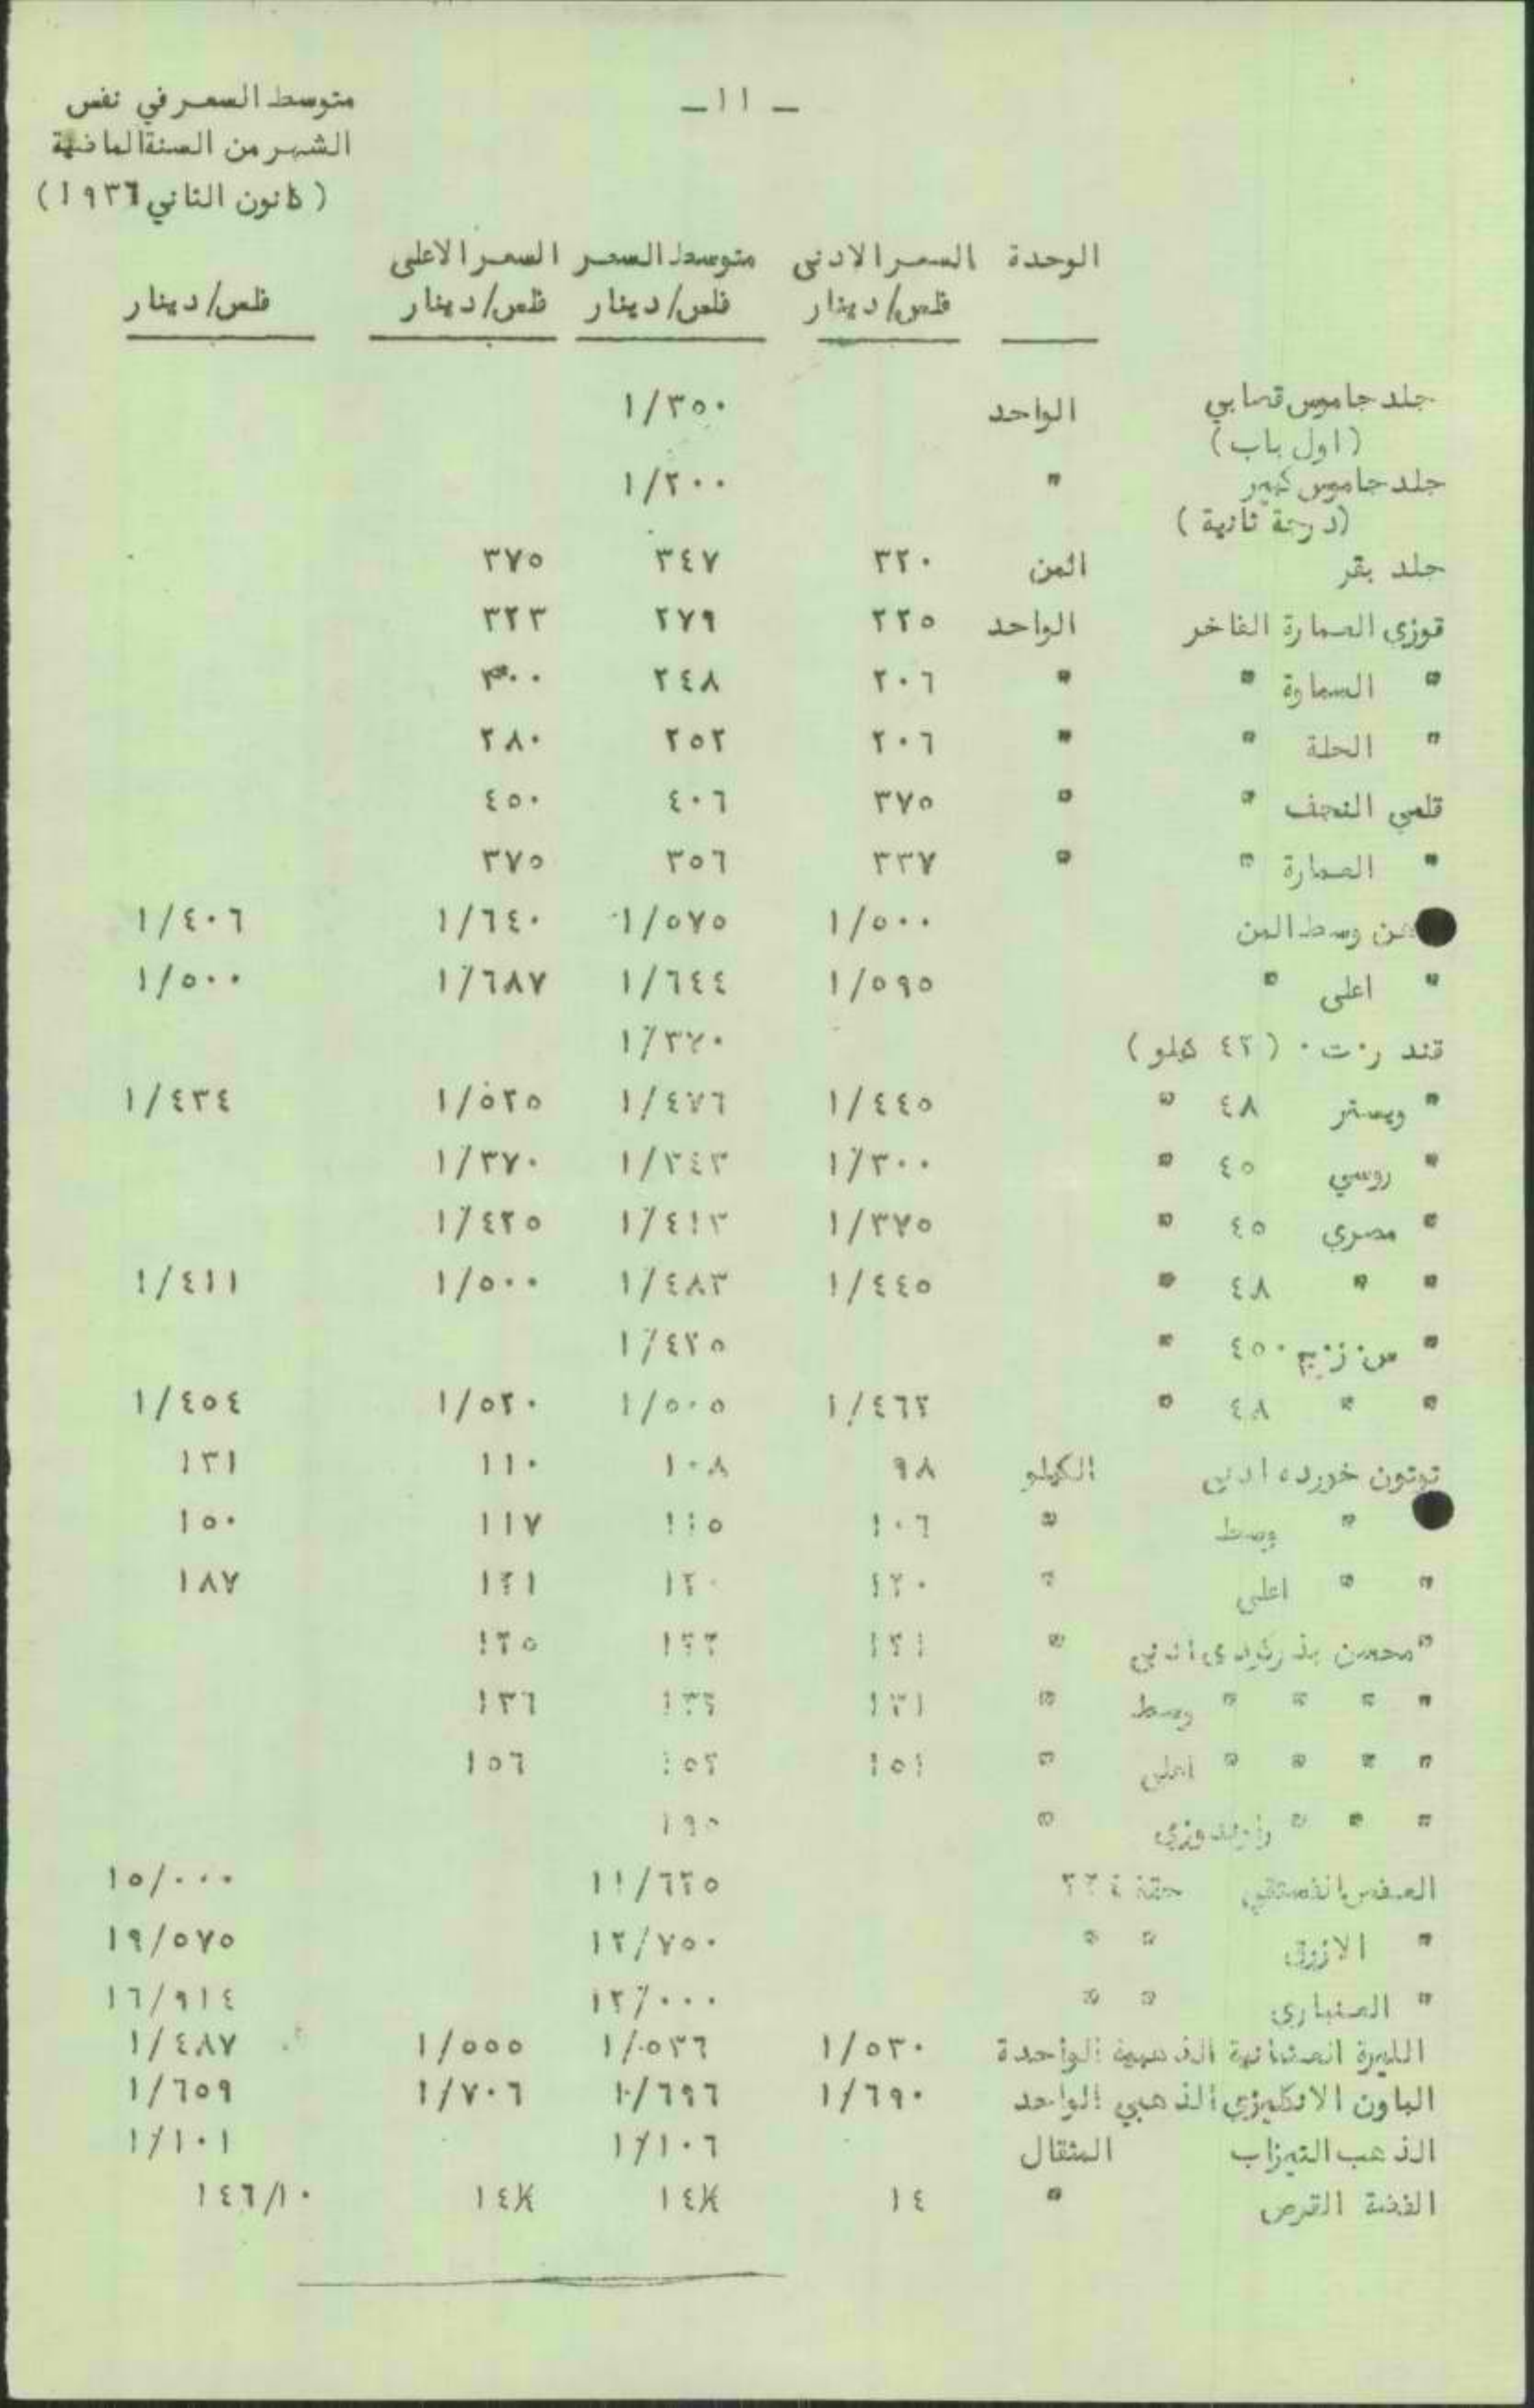 - ١١ -
متوسط السعر في نفس
الشهر من السنة الماضية
(كانون الثاني ١٩٣٦)
الوحدة السعر الادنى متوسط السعر السعر الاعلى
فلس/دينار فلس/دينار فلس/دينار فلس/دينار
جلد جاموس قصابي الواحد ١/٣٥٠
(اول باب)
جلد جاموس كبير " ١/٢٠٠
(درجة ثانية)
جلد بقر المن ٣٢٠ ٣٤٧ ٣٧٥
قوزي العمارة الفاخر الواحد ٢٢٥ ٢٧٩ ٣٢٣
" السماوة " " ٢٠٦ ٢٤٨ ٣٠٠
" الحلة " " ٢٠٦ ٢٥٢ ٢٨٠
قلمي النجف " " ٣٧٥ ٤٠٦ ٤٥٠
" العمارة " " ٣٣٧ ٣٥٦ ٣٧٥
وسط المن ١/٥٠٠ ١/٥٧٥ ١/٦٤٠ ١/٤٠٦
" اعلى " ١/٥٩٥ ١/٦٤٤ ١/٦٨٧ ١/٥٠٠
قند ر.ت. (٤٢ كيلو) ١/٣٧٠
" ويستر ٤٨ " ١/٤٤٥ ١/٤٧٦ ١/٥٢٥ ١/٤٣٤
" روسي ٤٥ " ١/٣٠٠ ١/٣٤٣ ١/٣٧٠
" مصري ٤٥ " ١/٣٧٥ ١/٤١٣ ١/٤٢٥
" " ٤٨ " ١/٤٤٥ ١/٤٨٣ ١/٥٠٠ ١/٤١١
" س.ز.ج. ٤٥ " ١/٤٢٥
" " ٤٨ " ١/٤٦٢ ١/٥٠٥ ١/٥٢٠ ١/٤٥٤
توتون خورده ادنى الكيلو ٩٨ ١٠٨ ١١٠ ١٣١
" وسط " ١٠٦ ١١٥ ١١٧ ١٥٠
" " اعلى " ١٢٠ ١٢٠ ١٢١ ١٨٧
" محسن ادنى " ١٢١ ١٢٣ ١٢٥
" " " " وسط " ١٣١ ١٣٢ ١٣٦
" " " " اعلى " ١٥١ ١٥٢ ١٥٦
" " " راوندوزي " ١٩٥
العفص الفستقي حقة ٢٢٤ ١١/٦٢٥ ١٥/٠٠٠
" الازرق " " ١٢/٧٥٠ ١٩/٥٧٥
" الصنباري " " ١٢/٠٠٠ ١٦/٩١٤
الليرة العثمانية الذهبية الواحدة ١/٥٣٠ ١/٥٣٦ ١/٥٥٥ ١/٤٨٧
الباون الانكليزي الذهبي الواحد ١/٦٩٠ ١/٦٩٦ ١/٧٠٦ ١/٦٥٩
الذهب التيزاب المثقال ١/١٠٦ ١/١٠١
الفضة القرص " ١٤ ١٤½ ١٤½ ١٤٦/١٠